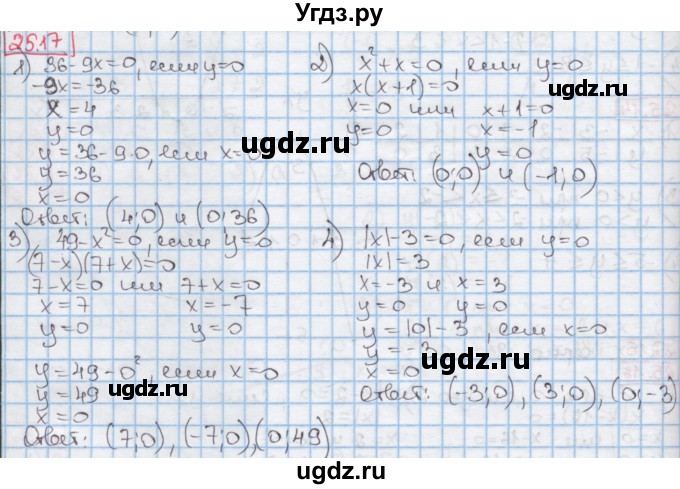 Угдз.ру
25.17
1) 36-9x=0, если y=0
-9x=-36
x=4
y=0
y=36-9·0, если x=0
y=36
x=0
Ответ: (4;0) и (0;36)
2) x²+x=0, если y=0
x(x+1)=0
x=0 или x+1=0
y=0 x=-1
y=0
Ответ: (0;0) и (-1;0)
3) 49-x²=0, если y=0
(7-x)(7+x)=0
7-x=0 или 7+x=0
x=7 x=-7
y=0 y=0
y=49-0², если x=0
y=49
x=0
Ответ: (7;0), (-7;0), (0;49)
4) |x|-3=0, если y=0
|x|=3
x=-3 и x=3
y=0 y=0
y=|0|-3, если x=0
y=-3
x=0
Ответ: (-3;0), (3;0), (0;-3)
ugdz.ru
ugdz.ru
ugdz.ru
ugdz.ru
ugdz.ru
ugdz.ru
ugdz.ru
ugdz.ru